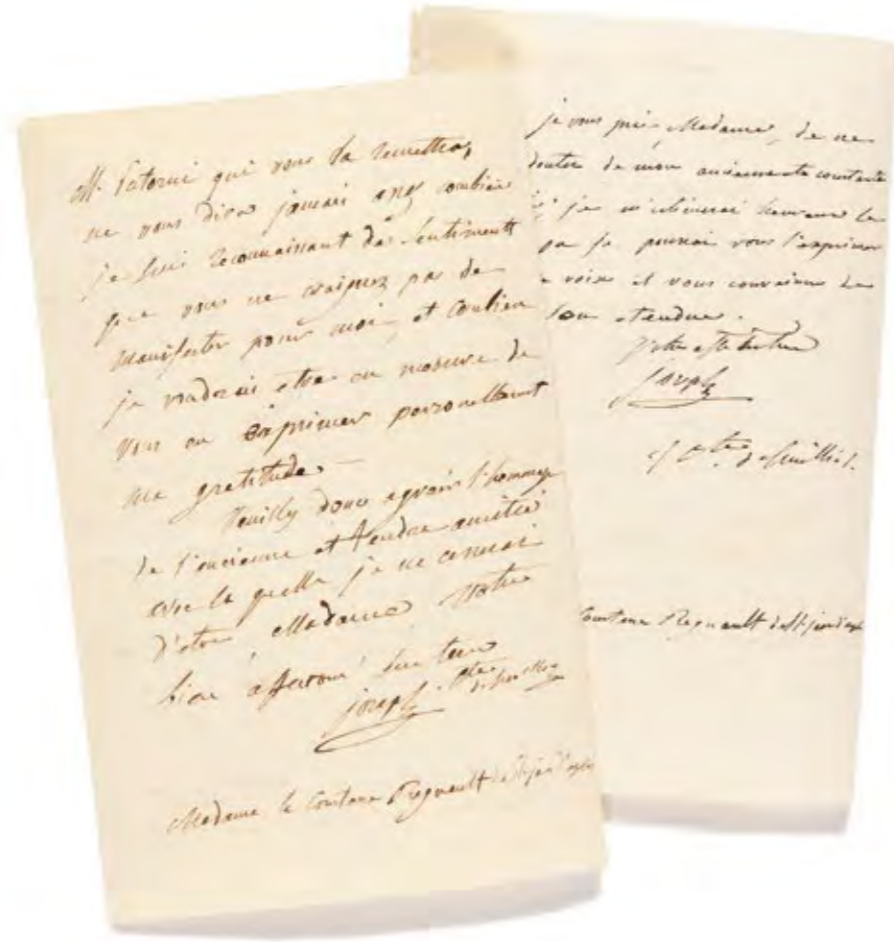 M. Patorni qui vous la remettra,
ne vous dira jamais assez combien
je suis reconnaissant des sentiments
que vous ne craignez pas de
manifester pour moi, et combien
je voudrai etre en mesure de
vous en exprimer personellement
ma gratitude.
Veuillez donc agreér l'hommage
de l'ancienne et tendre amitié
avec la quelle je ne cesserai
d'etre, Madame, Votre
bien affectionné serviteur
joseph cte de
Madame la Comtesse Regnault de St jean d'angely
je vous prie, Madame, de ne
douter de mon ancienne et constante
je m'estimerai heureux le
je pourrai vous l'exprimer
voix et vous convaincre de
son etendue.
Votre affectionné
joseph
cte de Survilliers.
Comtesse Regnault de St jean d'angely